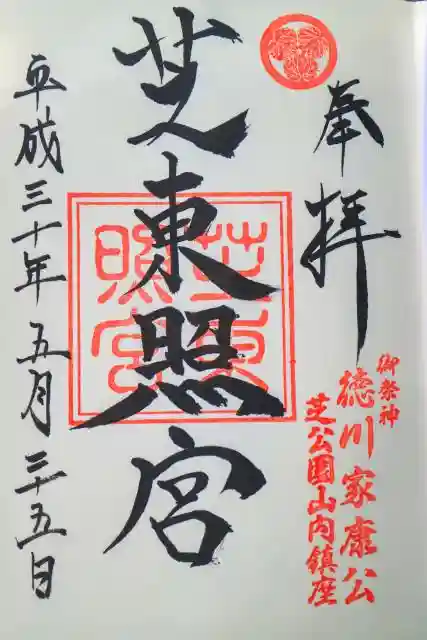 奉拝
御祭神
徳川家康公
芝公園山内鎮座
芝東照宮
芝東照宮
平成三十年五月二十五日